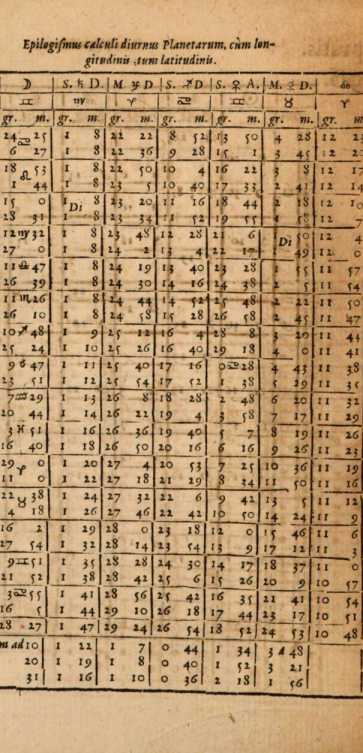 Epilogismus calculi diurnus Planetarum, cùm lon-
gitudinis, tum latitudinis.
☽ | S. ♄ D. | M. ♃ D | S. ♂ D | S. ♀ A. | M. ☿ D. | do
♊ | ♍ | ♈ | ♋ | ♊ | ♉ | ♈
gr. m. | gr. m. | gr. m. | gr. m. | gr. m. | gr. m. | gr. m
24 ♋ 25 | 1 8 | 22 22 | 8 52 | 13 50 | 4 28 | 12 23
6 27 | 1 8 | 22 36 | 9 28 | 15 1 | 3 45 | 12 2
18 ♌ 53 | 1 8 | 22 50 | 10 4 | 16 22 | 3 8 | 12 17
1 44 | 1 8 | 23 5 | 10 40 | 17 33 | 2 41 | 12 14
15 0 | Di 8 | 23 20 | 11 16 | 18 44 | 2 18 | 12 10
28 31 | 1 8 | 23 34 | 11 52 | 19 55 | 1 58 | 12 7
12 ♍ 32 | 1 8 | 23 48 | 12 28 | 21 6 | Di 50 | 12 4
27 0 | 1 8 | 24 2 | 13 4 | 22 17 | 49 | 12 0
11 ♎ 47 | 1 8 | 24 19 | 13 40 | 23 28 | 1 55 | 11 57
26 39 | 1 8 | 24 30 | 14 16 | 24 38 | 2 5 | 11 54
11 ♏ 26 | 1 8 | 24 44 | 14 52 | 25 48 | 2 22 | 11 50
26 10 | 1 8 | 24 58 | 15 28 | 26 58 | 2 45 | 11 47
10 ♐ 48 | 1 9 | 25 12 | 16 4 | 28 8 | 3 20 | 11 44
25 24 | 1 10 | 25 26 | 16 40 | 29 18 | 4 0 | 11 41
9 ♑ 47 | 1 11 | 25 40 | 17 16 | 0 ♋ 28 | 4 43 | 11 38
23 51 | 1 12 | 25 54 | 17 52 | 1 38 | 5 29 | 11 35
7 ♒ 29 | 1 13 | 26 8 | 18 28 | 2 48 | 6 20 | 11 32
20 44 | 1 14 | 26 22 | 19 4 | 3 58 | 7 17 | 11 29
3 ♓ 51 | 1 16 | 26 36 | 19 40 | 5 7 | 8 19 | 11 26
16 40 | 1 18 | 26 50 | 20 16 | 6 16 | 9 26 | 11 23
29 ♈ 0 | 1 20 | 27 4 | 20 53 | 7 25 | 10 36 | 11 19
11 0 | 1 22 | 27 18 | 21 29 | 8 34 | 11 50 | 11 16
22 ♉ 38 | 1 24 | 27 32 | 22 6 | 9 42 | 13 5 | 11 12
4 18 | 1 26 | 27 46 | 22 42 | 10 50 | 14 24 | 11 9
16 2 | 1 29 | 28 0 | 23 18 | 12 0 | 15 46 | 11 6
27 54 | 1 32 | 28 14 | 23 54 | 13 9 | 17 12 | 11 3
9 ♊ 51 | 1 35 | 28 28 | 24 30 | 14 17 | 18 37 | 11 0
21 52 | 1 38 | 28 42 | 25 6 | 15 26 | 20 9 | 10 57
3 ♋ 55 | 1 41 | 28 56 | 25 42 | 16 35 | 21 41 | 10 54
16 5 | 1 44 | 29 10 | 26 18 | 17 44 | 23 17 | 10 51
28 27 | 1 47 | 29 24 | 26 54 | 18 52 | 24 53 | 10 48
m ad 10 | 1 22 | 1 7 | 0 44 | 1 34 | 3 A 48
20 | 1 19 | 1 8 | 0 40 | 1 52 | 3 21
31 | 1 16 | 1 10 | 0 36 | 2 18 | 1 56